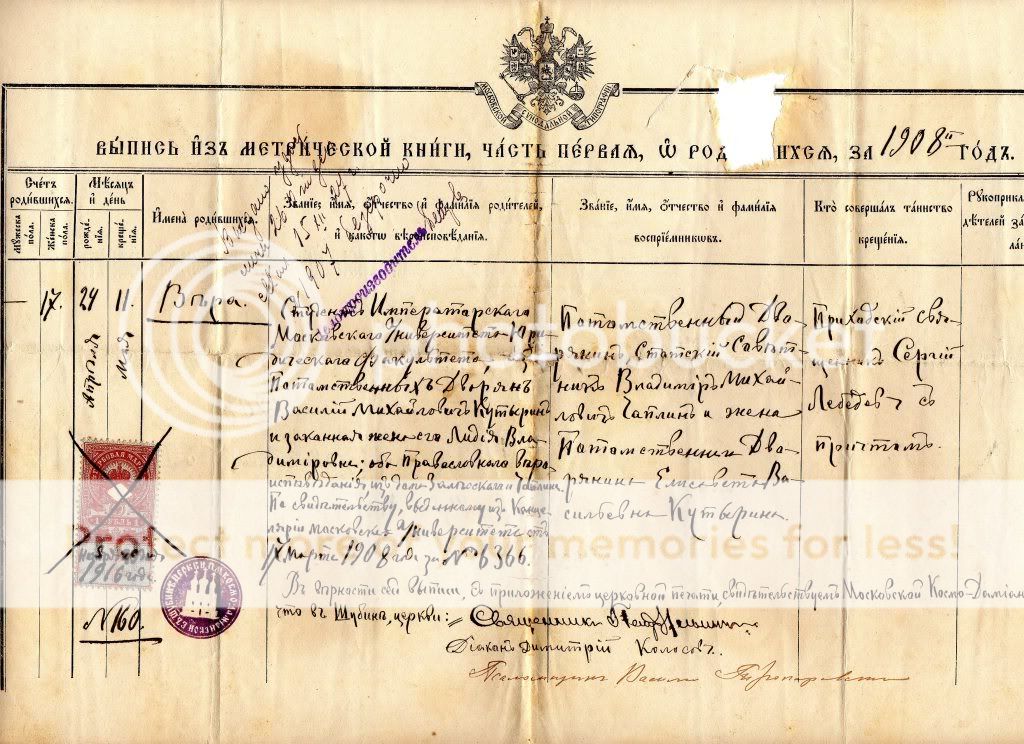 МОСКОВСКОЙ СѴНОДАЛЬНОЙ ТИПОГРАФІИ
ВЫПИСЬ ИЗЪ МЕТРИЧЕСКОЙ КНИГИ, ЧАСТЬ ПЕРВАЯ, Ѿ РОД ИХСЯ, ЗА 1908й ГОДЪ.
Счетъ родившихся.
Мужеска пола.
Женска пола.
Мѣсяцъ и день
рожденія.
крещенія.
Имена родившихся.
Званіе, имя, отчество и фамилія родителей,
и какого вѣроисповѣданія.
Званіе, имя, отчество и фамилія
воспріемниковъ.
Кто совершалъ таинство
крещенія.
Рукоприкла
дѣтелей за
17. 24 11.
Мая
Вѣра.
Студентъ Императорскаго
Московскаго Университета Юри-
дическаго Факультета, изъ
Потомственныхъ Дворянъ
Василій Михайловичъ Кутыринъ
и законная жена его Лидія Вла-
димировна; оба Православнаго вѣро-
исповѣданія
По свидѣтельству, выданному изъ Канце-
ляріи Московскаго Университета отъ
Марта 1908 года за № 6366.
Потомственный Дво-
рянинъ, Статскій Совѣт-
никъ Владиміръ Михай-
ловичъ Чаплинъ и жена
Потомственнаго Дво-
рянина Елисавета Ва-
сильевна Кутырина.
Приходскій Свя-
щенникъ Сергій
Лебедевъ съ
причтомъ.
1916 года
№ 160.
Въ вѣрности сей выписи, съ приложеніемъ церковной печати, свидѣтельствуемъ Московской Космо-Даміан
что въ Шубинѣ, церкви:
Священникъ
Діаконъ Димитрій Колосовъ.
Псаломщикъ Василій
photobucket
Protect more of your memories for less!